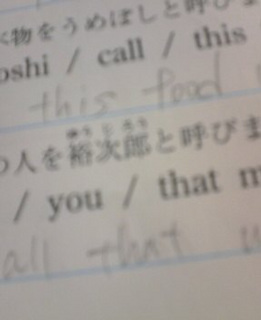 物をうめぼしと呼びま
oshi / call / this
this food
人を裕次郎と呼びま
/ you / that m
all that